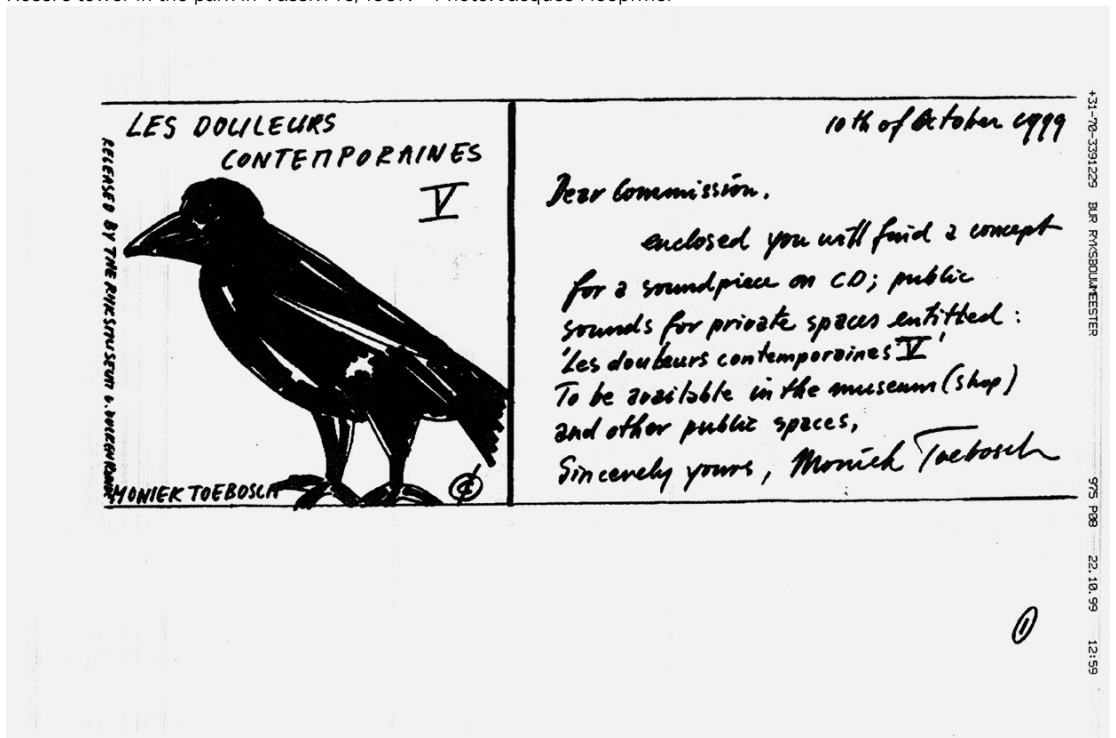 LES DOULEURS
CONTEMPORAINES
V
RELEASED BY THE RIJKSMUSEUM
MONIEK TOEBOSCH
10th of October 1999
Dear Commission,
enclosed you will find a concept
for a soundpiece on CD; public
sounds for private spaces entitled:
'Les douleurs contemporaines V'
To be available in the museum (shop)
and other public spaces,
Sincerely yours, Moniek Toebosch
+31-70-3391229 BUR RYKSBOUWMEESTER 975 P08 22.10.99 12:59
1